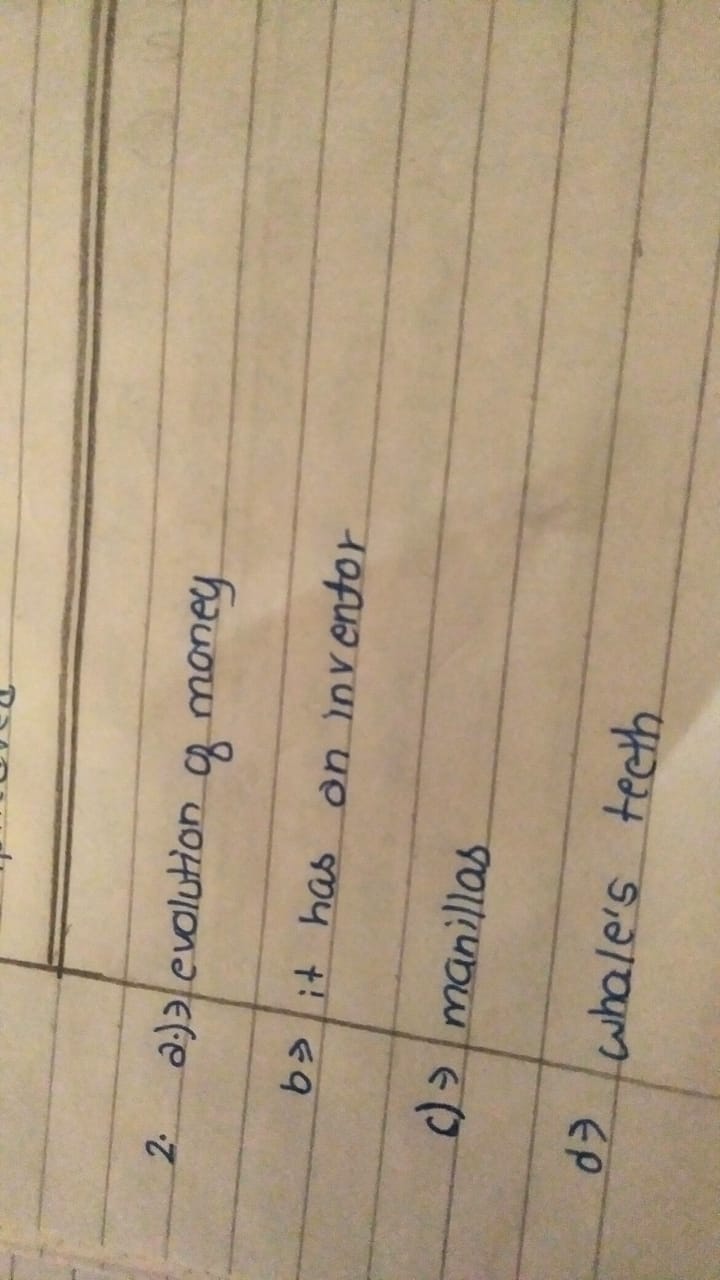 2. a.)→ evolution of money
b→ it has an inventor
c)→ manillas
d→ whale's teeth